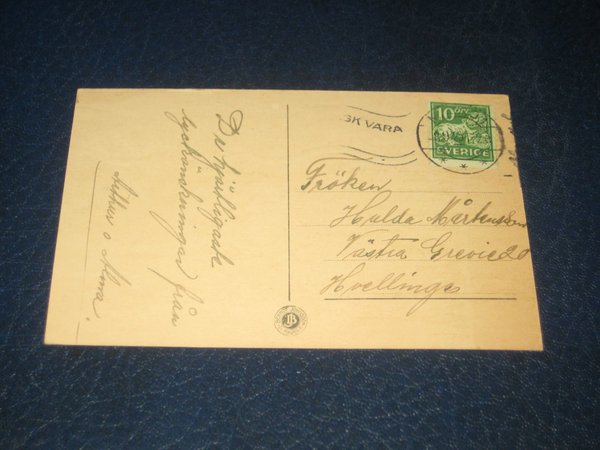 De hjärtligaste
lyckönskningar från
Arthur o Alma.
SK VARA
10 ÖRE
SVERIGE
Fröken
Hulda Mårtensson
Västra Grevie 20
Hvellinge